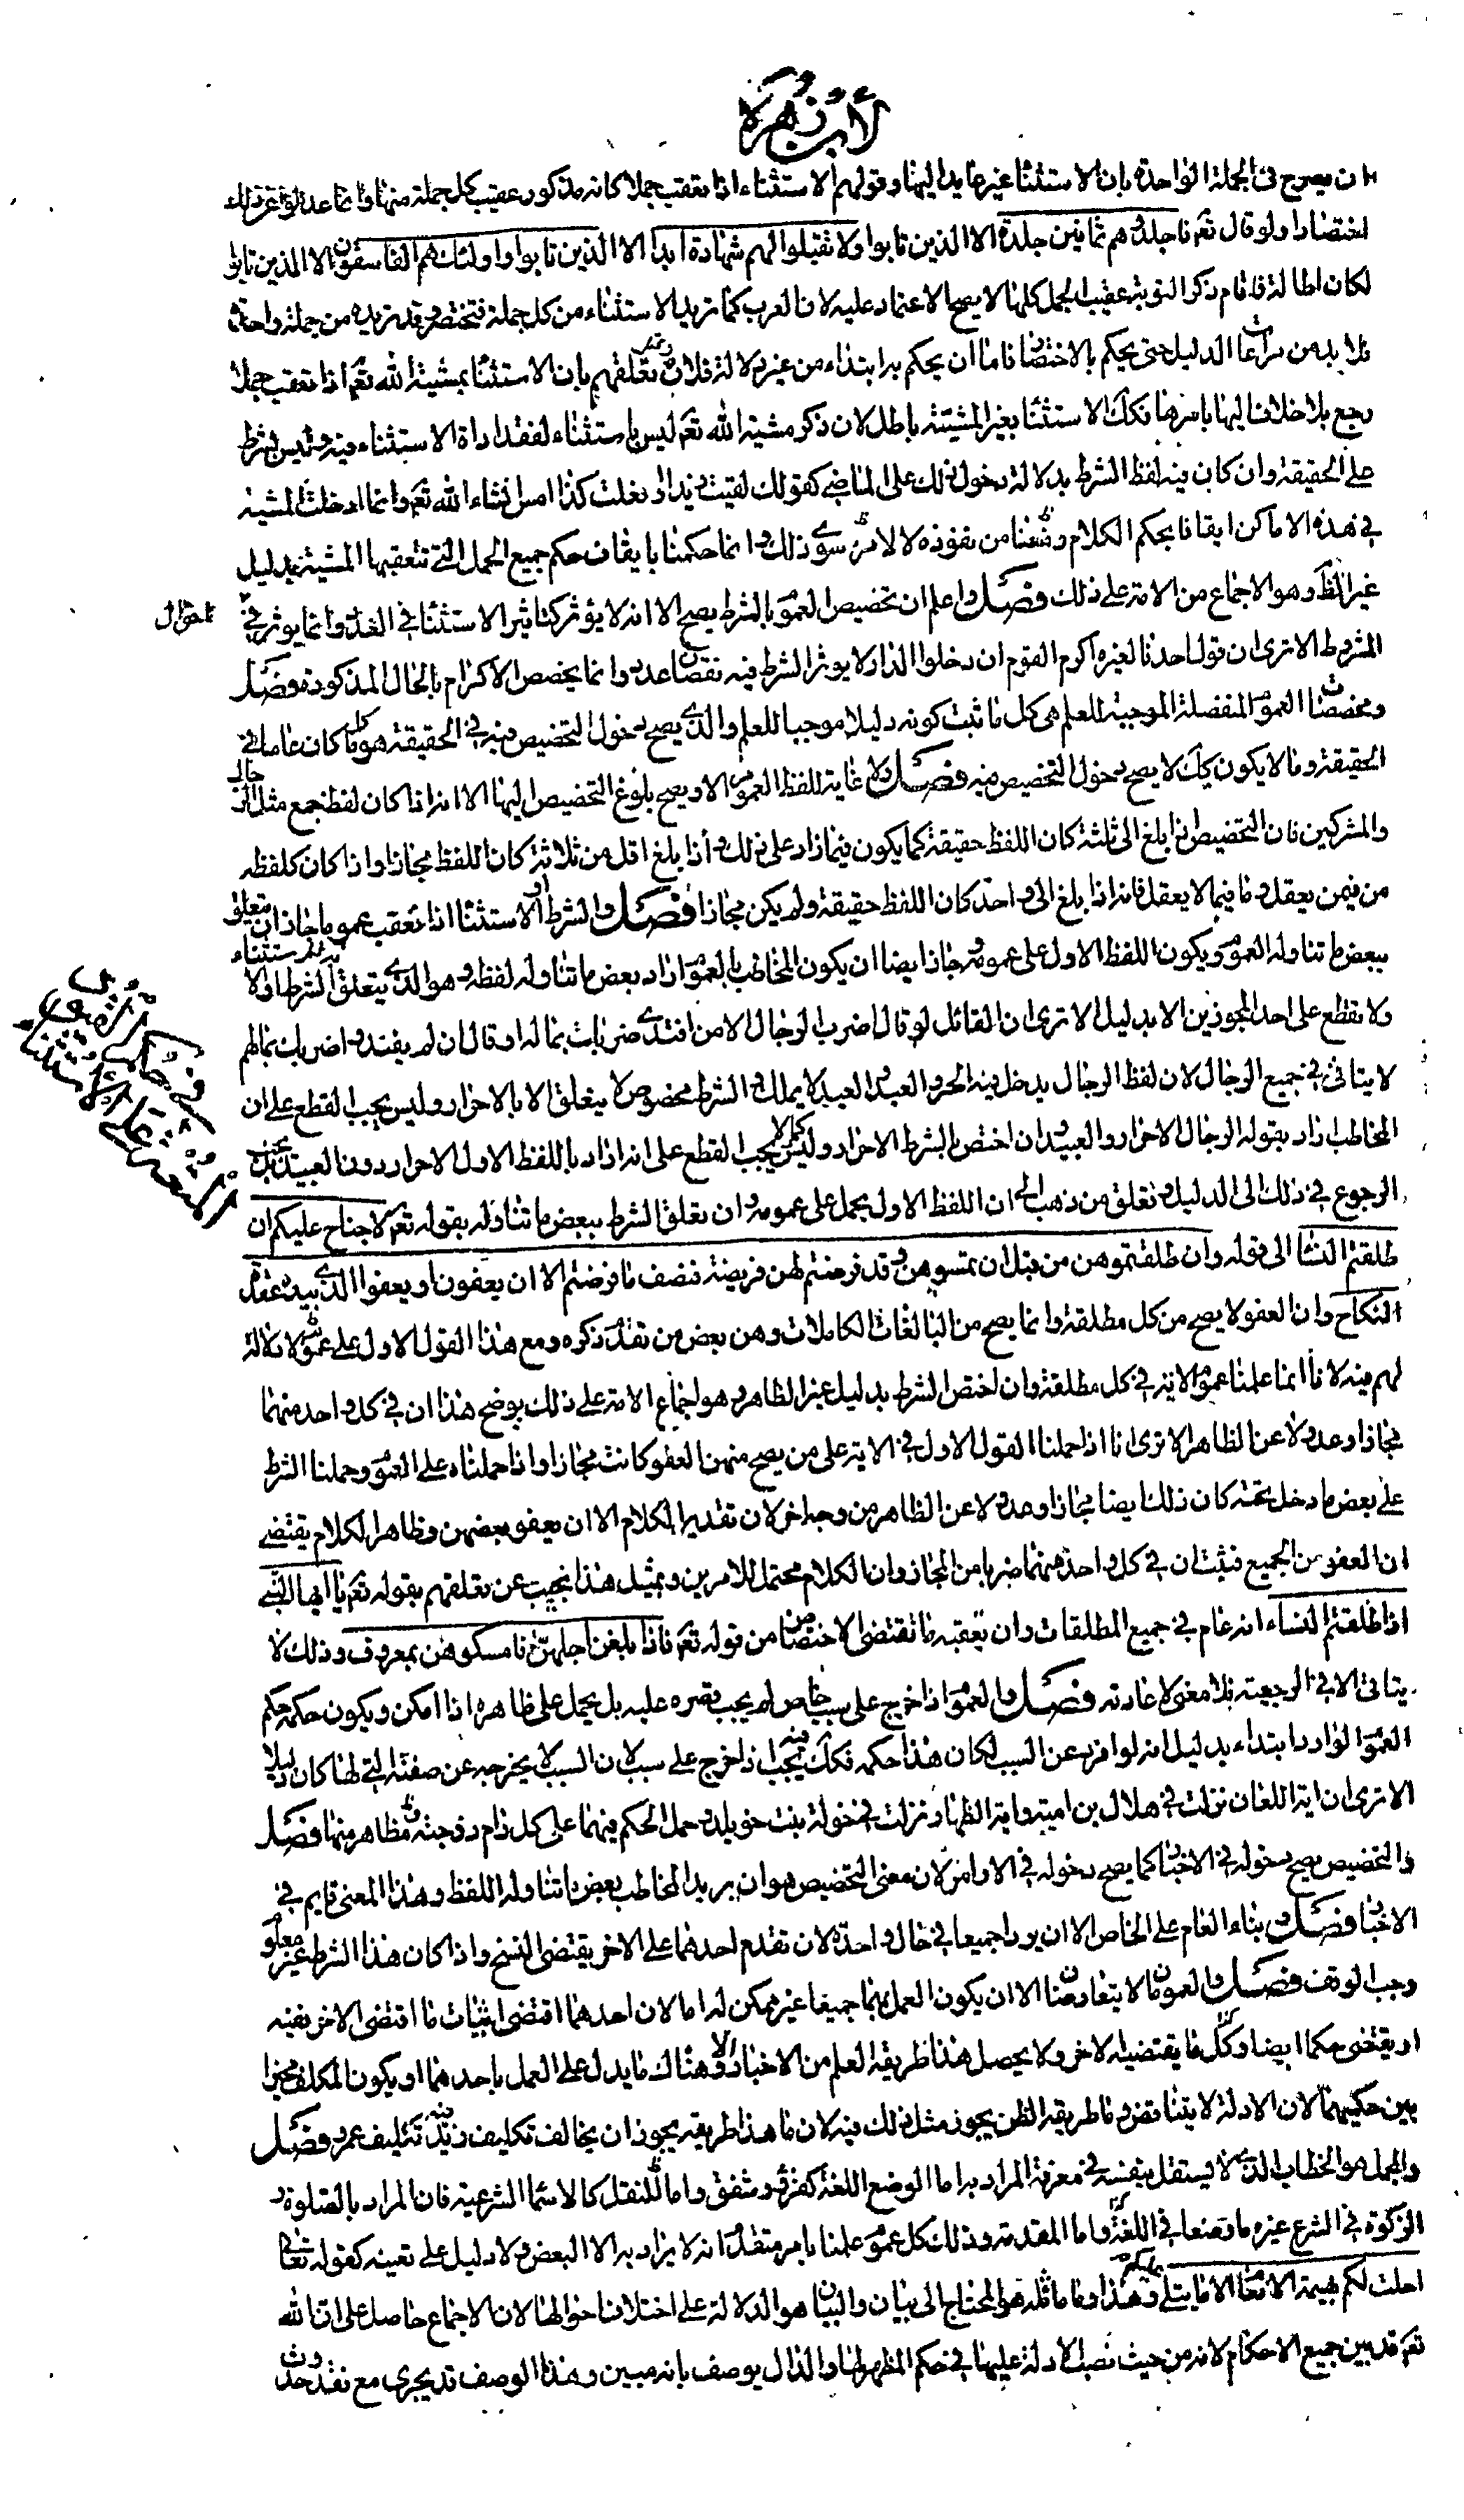 لابن زهرة
ان يصرح فى الجملة الواحدة بان الاستثنا غير عايد اليها وقولهم الاستثناء اذا تعقب جملا كانه مذكور عقيب كل جملة منها وانما عدلوا عن ذلك
اختصارا ولو قال تعم فاجلدوهم ثمانين جلدة الا الذين تابوا ولا تقبلوا لهم شهادة ابدا الا الذين تابوا واولئك هم الفاسقون الا الذين تابوا
لكان اطالة فاقام ذكر التوبة عقيب الجمل كلها لا يصح الاعتماد عليه لان العرب كما تريد الاستثناء من كل جملة فتختصر وقد تريده من جملة واحدة
فلا بد من مراعات الدليل حتى يحكم بالاختصار فاما ان يحكم به ابتداء من غير دلالة فلا وتعلقهم بان الاستثنا بمشية الله تعم اذا تعقب جملا
رجع بلا خلاف اليها باسرها فكك الاستثنا بغير المشيته باطل لان ذكر مشية الله تعم ليس باستثناء لفقد اداة الاستثناء فيه وليس بشرط
على الحقيقة وان كان فيه لفظ الشرط بدلالة دخول ذلك على الماضى كقولك لقيت زيدا وفعلت كذا امس انشاء الله تعم وانما ادخلت المشية
فى هذه الاماكن ايقافا بحكم الكلام ومنعا من نفوذه لا لامر سوى ذلك وانما حكمنا بايقاف حكم جميع الجمل التى تتعقبها المشية بدليل
غير الظ وهو الاجماع من الامة على ذلك فصل واعلم ان تخصيص العمو بالشرط يصح الا انه لا يؤثر كتاثير الاستثنا فى العدد وانما يوثر فى
المشروط الا ترى ان قول احدنا لغيره اكرم القوم ان دخلوا الدار لا يوثر الشرط فيه نقصان عدد وانما يخصص الاكرام بالحال المذكورة فصل
ومخصصات العمو المنفصلة الموجبة للعلم هى كل ما ثبت كونه دليلا موجبا للعلم والذى يصح دخول التخصيص فيه فى الحقيقة هو كلما كان عاما فى
الحقيقة وما لا يكون كك لا يصح دخول التخصيص فيه فصل ولا غاية للفظ العموم الا ويصح بلوغ التخصيص اليها الا انه اذا كان لفظ جمع مثل الرجال
والمشركين فان التخصيص اذا بلغ الى ثلثة كان اللفظ حقيقة كما يكون فيما زاد على ذلك واذا بلغ اقل من ثلاثة كان اللفظ مجازا واذا كان كلفظه
من فيمن يعقل وما فيما لا يعقل فانه اذا بلغ الى واحد كان اللفظ حقيقة ولم يكن مجازا فصل والشرط او الاستثنا اذا تعقب عموما جاز ان يتعلق
ببعض ما تناوله العمو ويكون اللفظ الاول على عمومه وجاز ايضا ان يكون المخاطب بالعمو اراد بعض ما تناوله لفظه وهو الذى يتعلق الشرط او الاستثناء به
ولا نقطع على احد المجوزين الا بدليل الا ترى ان القائل لو قال اضرب الرجال الا من افتدى ضربك بماله او قال ان لم يفتدوا ضربك بمالهم
لا يتاتى فى جميع الرجال لان لفظ الرجال يدخل فيه الحر والعبد والعبد لا يملك والشرط مخصوص لا يتعلق الا بالاحرار وليس يجب القطع على ان
المخاطب اراد بقوله الرجال الاحرار والعبيد وان اختص بالشرط الاحرار وليس كك لا يجب القطع على انه اراد باللفظ الاول الاحرار دون العبيد بل يجب
الرجوع فى ذلك الى الدليل وتعلق من ذهب الى ان اللفظ الاول يحمل على عمومه وان تعلق الشرط ببعض ما تناوله بقوله تعم لا جناح عليكم ان
طلقتم النسا الى قوله وان طلقتموهن من قبل ان تمسوهن وقد فرضتم لهن فريضة فنصف ما فرضتم الا ان يعفون او يعفوا الذى بيده عقدة
النكاح وان العفو لا يصح من كل مطلقة وانما يصح من البالغات الكاملات وهن بعض من تقدم ذكره ومع هذا القول الاول على عمومه لا دلالة
لهم فيه لانا انما علمنا عمو الاية فى كل مطلقة وان اختص الشرط بدليل غير الظاهر وهو اجماع الامة على ذلك يوضح هذا ان فى كل واحد منهما
مجازا وعدولا عن الظاهر الا ترى انا اذا حملنا القول الاول فى الاية على من يصح منهن العفو كانت مجازا واذا حملناه على العمو وحملنا الشرط
على بعض ما دخل تحته كان ذلك ايضا مجازا وعدولا عن الظاهر من وجه اخر لان تقدير الكلام الا ان يعفو بعضهن وظاهر الكلام يقتضى
ان العفو من الجميع فثبت ان فى كل واحد منهما ضربا من المجاز وان الكلام محتمل للامرين وبمثل هذا نجيب عن تعلقهم بقوله تعم يا ايها النبى
اذا طلقتم النساء انه عام فى جميع المطلقات وان تعقبه ما يقتضى الاختصاص من قوله تعم فاذا بلغن اجلهن فامسكوهن بمعروف وذلك لا
يتاتى الا فى الرجعية فلا معنى لاعادته فصل والعمو اذا خرج على سبب خاص لم يجب قصره عليه بل يحمل على ظاهره اذا امكن ويكون حكمه حكم
العمو الوارد ابتداء بدليل انه لو انفرد عن السبب لكان هذا حكمه فكك يجب فيه اذا خرج على سبب لان السبب لا يخرجه عن صفته التى لها كان دليلا
الا ترى ان اية اللعان نزلت فى هلال بن امية واية الظهار نزلت فى خولة بنت خويلد وحمل الحكم فيهما على كل رام زوجته ومظاهر منها فصل
والتخصيص يصح دخوله فى الاخبار كما يصح دخوله فى الاوامر لان معنى التخصيص هو ان يريد المخاطب بعض ما تناوله اللفظ وهذا المعنى قايم فى
الاخبار فصل وبناء العام على الخاص الا ان يردا جميعا فى حال واحدة لان تقدم احدهما على الاخر يقتضى النسخ واذا كان هذا الشرط غير معلوم
وجب الوقف فصل والعمومان لا يتعارضان الا ان يكون العمل بهما جميعا غير ممكن له اما لان احدهما اقتضى اثبات ما اقتضى الاخر نفيه
او يقتضى حكما ايضاد كل ما يقتضيه الاخر ولا يحصل هذا طريقه العلم من الاخبار الا وهناك ما يدل على العمل باحدهما او يكون المكلف مخيرا
بين حكميهما لان الادلة لا يتناقض وما طريقه الظن يجوز مثل ذلك فيه لان ما هذا طريقه يجوز ان يخالف تكليف زيد فيه تكليف عمرو فصل
والمجمل هو الخطاب الذى لا يستقل بنفسه فى معرفة المراد به اما الوضع اللغة كقرؤ وشفق واما للنقل كالاسما الشرعية فان المراد بالصلوة و
الزكوة فى الشرع غير ما وضعا فى اللغة واما المقدمة وذلك كل عمو علمنا بامر متقدم انه لا يراد به الا البعض ولا دليل على تعينه كقوله تعالى
احلت لكم بهيمة الانعا الا ما يتلى عليكم وهذا وما ماثله هو المحتاج الى بيان والبيان هو الدلالة على اختلاف احوالها لان الاجماع حاصل على ان الله
تعم قد بين جميع الاحكام لانه من حيث نصب الادلة عليها فى حكم المظهر لها والدال يوصف بانه مبين وهذا الوصف قد يجرى مع فقد حدوث